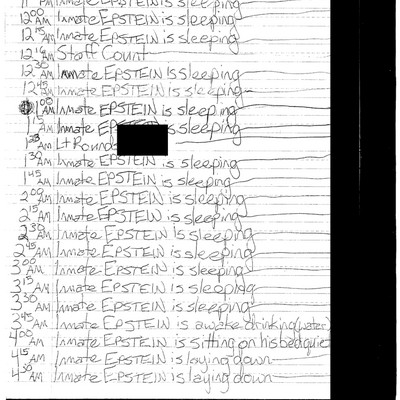 11 PM Inmate EPSTEIN is sleeping
12 00 AM Inmate EPSTEIN is sleeping
12 15 AM Inmate EPSTEIN is sleeping
12 16 AM Staff Count
12 30 AM Inmate EPSTEIN is sleeping
12 45 AM Inmate EPSTEIN is sleeping
1 00 AM Inmate EPSTEIN is sleeping
1 15 AM Inmate EPSTEIN is sleeping
1 23 AM Lt Rounds
1 30 AM Inmate EPSTEIN is sleeping
1 45 AM Inmate EPSTEIN is sleeping
2 00 AM Inmate EPSTEIN is sleeping
2 15 AM Inmate EPSTEIN is sleeping
2 30 AM Inmate EPSTEIN is sleeping
2 45 AM Inmate EPSTEIN is sleeping
3 00 AM Inmate EPSTEIN is sleeping
3 15 AM Inmate EPSTEIN is sleeping
3 30 AM Inmate EPSTEIN is sleeping
3 45 AM Inmate EPSTEIN is awake drinking (water)
4 00 AM Inmate EPSTEIN is sitting on his bed quiet
4 15 AM Inmate EPSTEIN is laying down
4 30 AM Inmate EPSTEIN is laying down